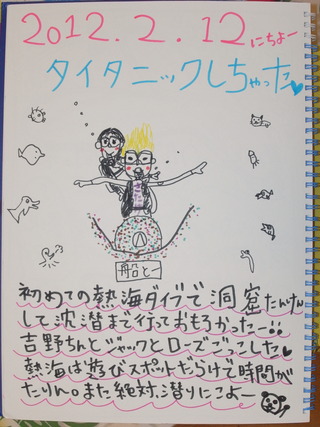 2012.2.12にちよー
タイタニックしちゃった♥
船とー
初めての熱海ダイブで洞窟たんけん
して沈潜まで行っておもろかったー!!
吉野ちんとジャックとローズごっこした♥
熱海は遊びスポットだらけで時間が
たりん。また絶対潜りにこよー